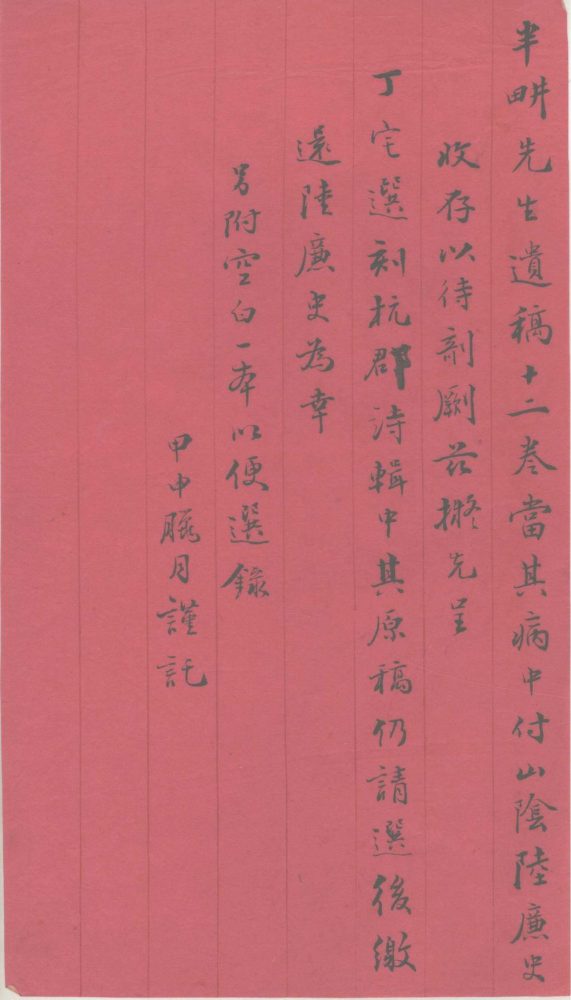 半畊先生遺稿十二卷當其病中付山陰陸廉史
收存以待剞劂茲擬先呈
丁宅選刻杭郡詩輯中其原稿仍請選後繳
還陸廉史為幸
另附空白一本以便選錄
甲申臘月謹託